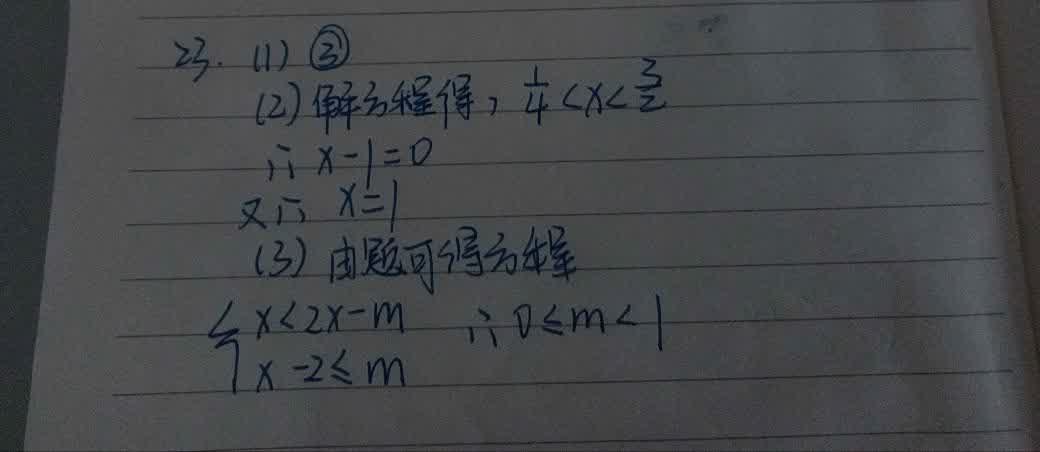 23. (1) ③
(2) 解方程得, 1/4 < x < 3/2
∴ x-1=0
又∵ x=1
(3) 由题可得方程
{ x<2x-m ∴ 0≤m<1
x-2≤m